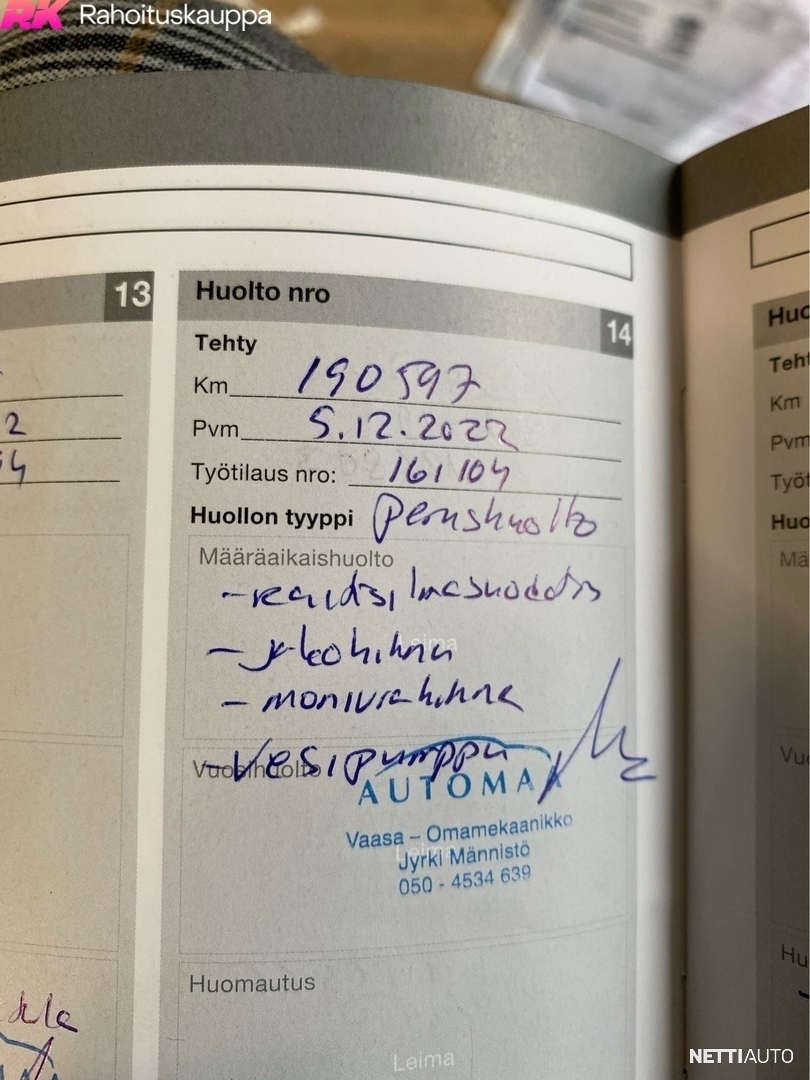 RK Rahoituskauppa
13
Huolto nro
14
Tehty
Km 190 597
Pvm 5.12.2022
Työtilaus nro: 161104
Huollon tyyppi Perushuolto
Määräaikaishuolto
- raitisilmasuodatis
Leima
- jakohihna
- moniurahihna
Vuosihuolto
- vesipumppu
AUTOMA
Vaasa – Omamekaanikko
Leima
Jyrki Männistö
050 - 4534 639
Huomautus
Leima
2
54
Huo
Teht
Km
Pvm
Työt
Huo
Mä
Vuo
Hu
NETTIAUTO